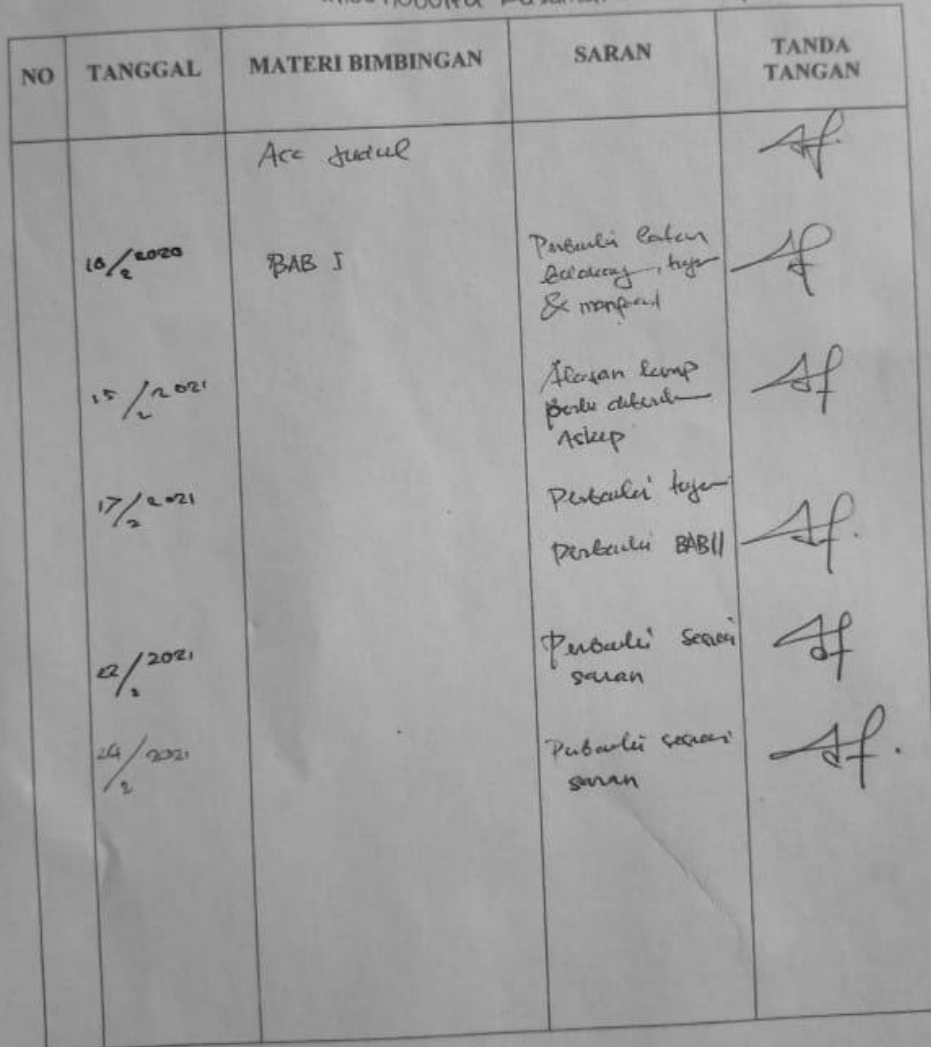 NO TANGGAL MATERI BIMBINGAN SARAN TANDA
TANGAN
Acc Judul
10/2 2020 BAB I Perbaiki latar
belakang, tujuan
& manfaat
15/2 2021 Alasan
perlu
Askep
17/2 2021 Perbaiki tujuan
Perbaiki BAB II
22/2 2021 Perbaiki sesuai
saran
24/2 2021 Perbaiki sesuai
saran